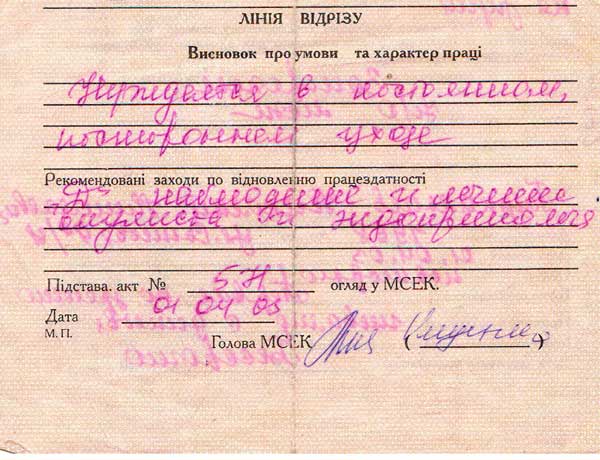 ЛІНІЯ ВІДРІЗУ
Висновок про умови та характер праці
Нуждается в постоянном,
постороннем уходе
Рекомендовані заходи по відновленню працездатності
"Д" наблюдение и лечение
окулиста и эндокринолога
Підстава. акт № 571 огляд у МСЕК.
Дата 01 04 03
М.П.
Голова МСЕК ( )